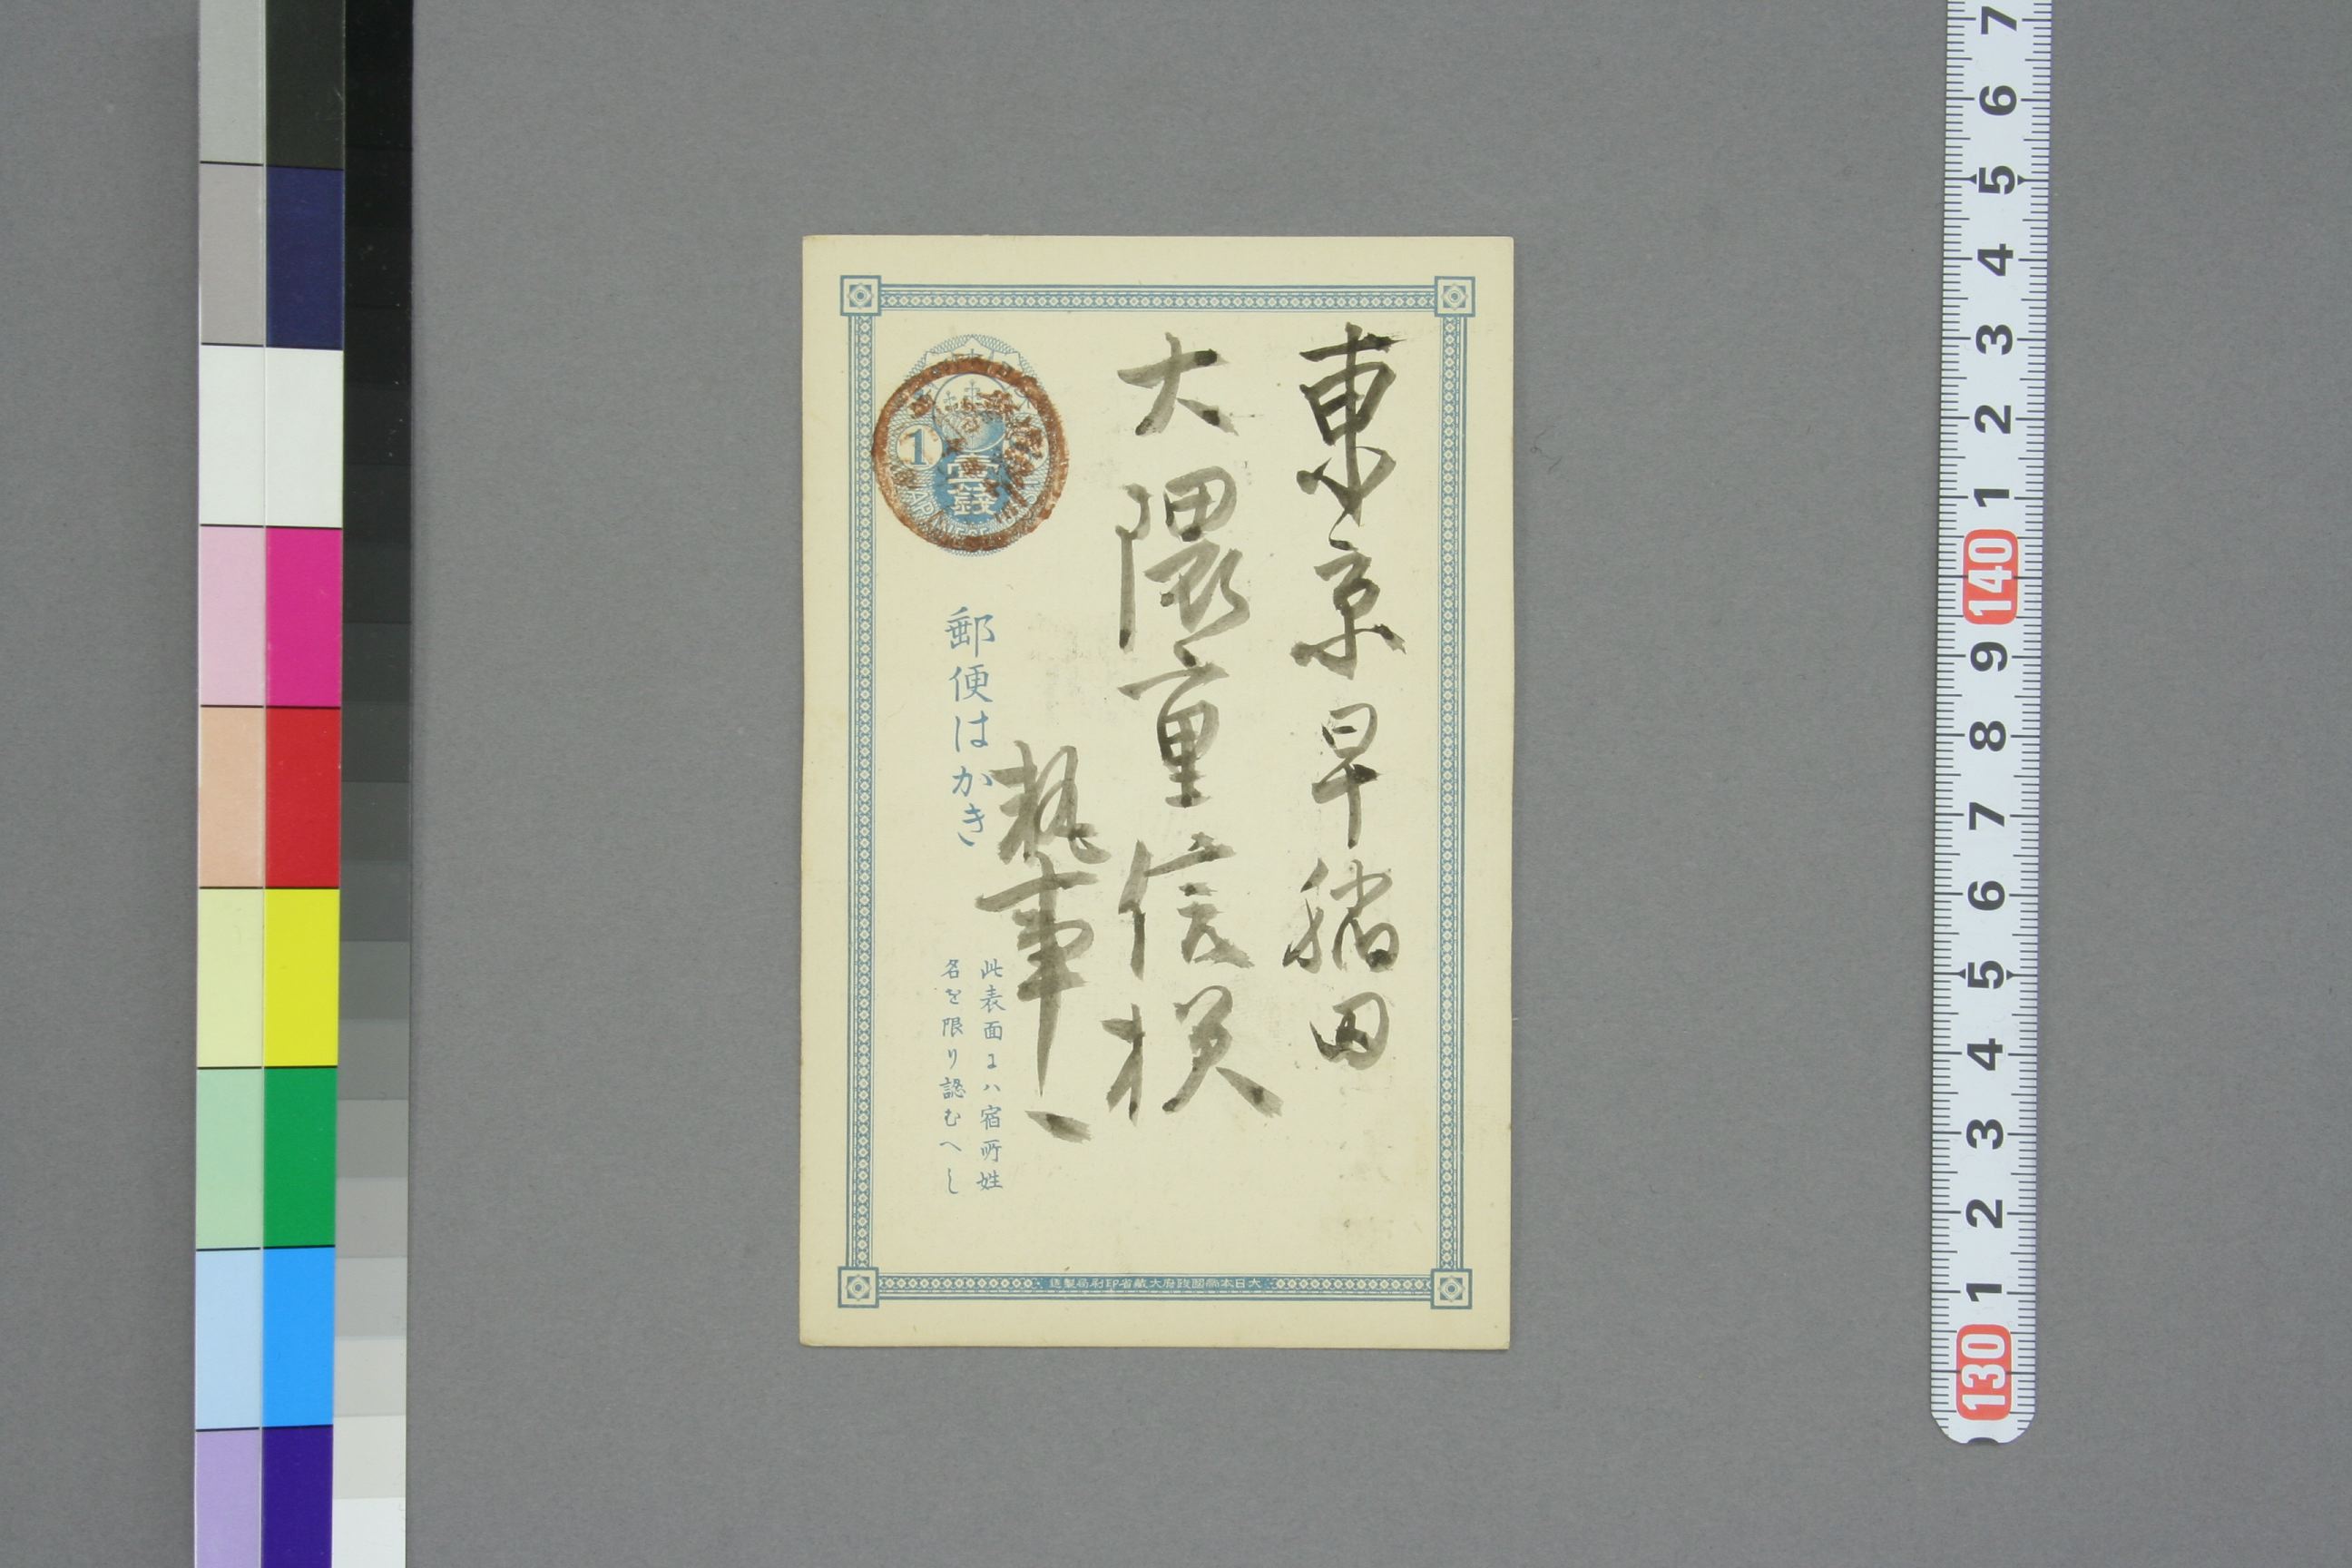 東京早稲田
大隈重信様
執事
郵便はかき
此表面にハ宿所姓
名を限り認むへし
1
壹錢
大日本帝國政府大蔵省印刷局製造
7
6
5
4
3
2
1
140
9
8
7
6
5
4
3
2
1
130